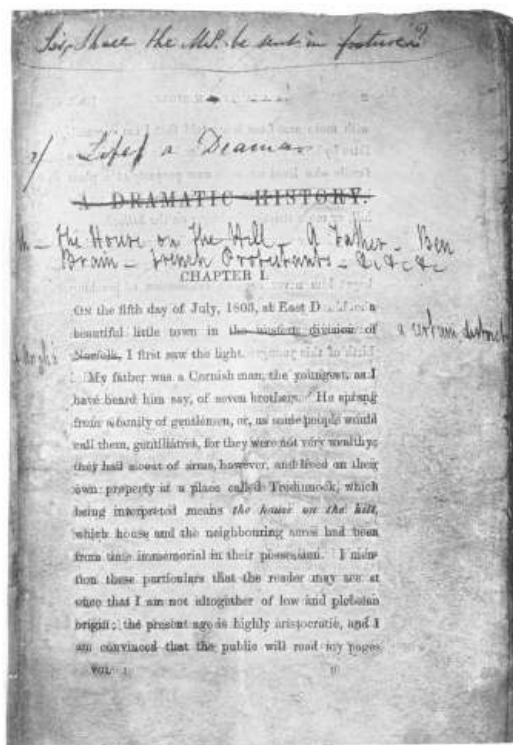 Sir, Shall the MS. be sent in future?
Life, a Drama.
A DRAMATIC HISTORY.
The House on The Hill – A Father – Ben
Brain – French Protestants – &. &. &.
CHAPTER I.
ON the fifth day of July, 1803, at East D a
beautiful little town in the western division of
a certain district
Norfolk, I first saw the light.
My father was a Cornish man, the youngest, as I
have heard him say, of seven brothers. He sprang
from a family of gentlemen, or, as some people would
call them, gentillâtres, for they were not very wealthy;
they had a coat of arms, however, and lived on their
own property at a place called Tredinnock, which
being interpreted means the house on the hill,
which house and the neighbouring acres had been
from time immemorial in their possession. I men-
tion these particulars that the reader may see at
once that I am not altogether of low and plebeian
origin; the present age is highly aristocratic, and I
am convinced that the public will read my pages
VOL. I